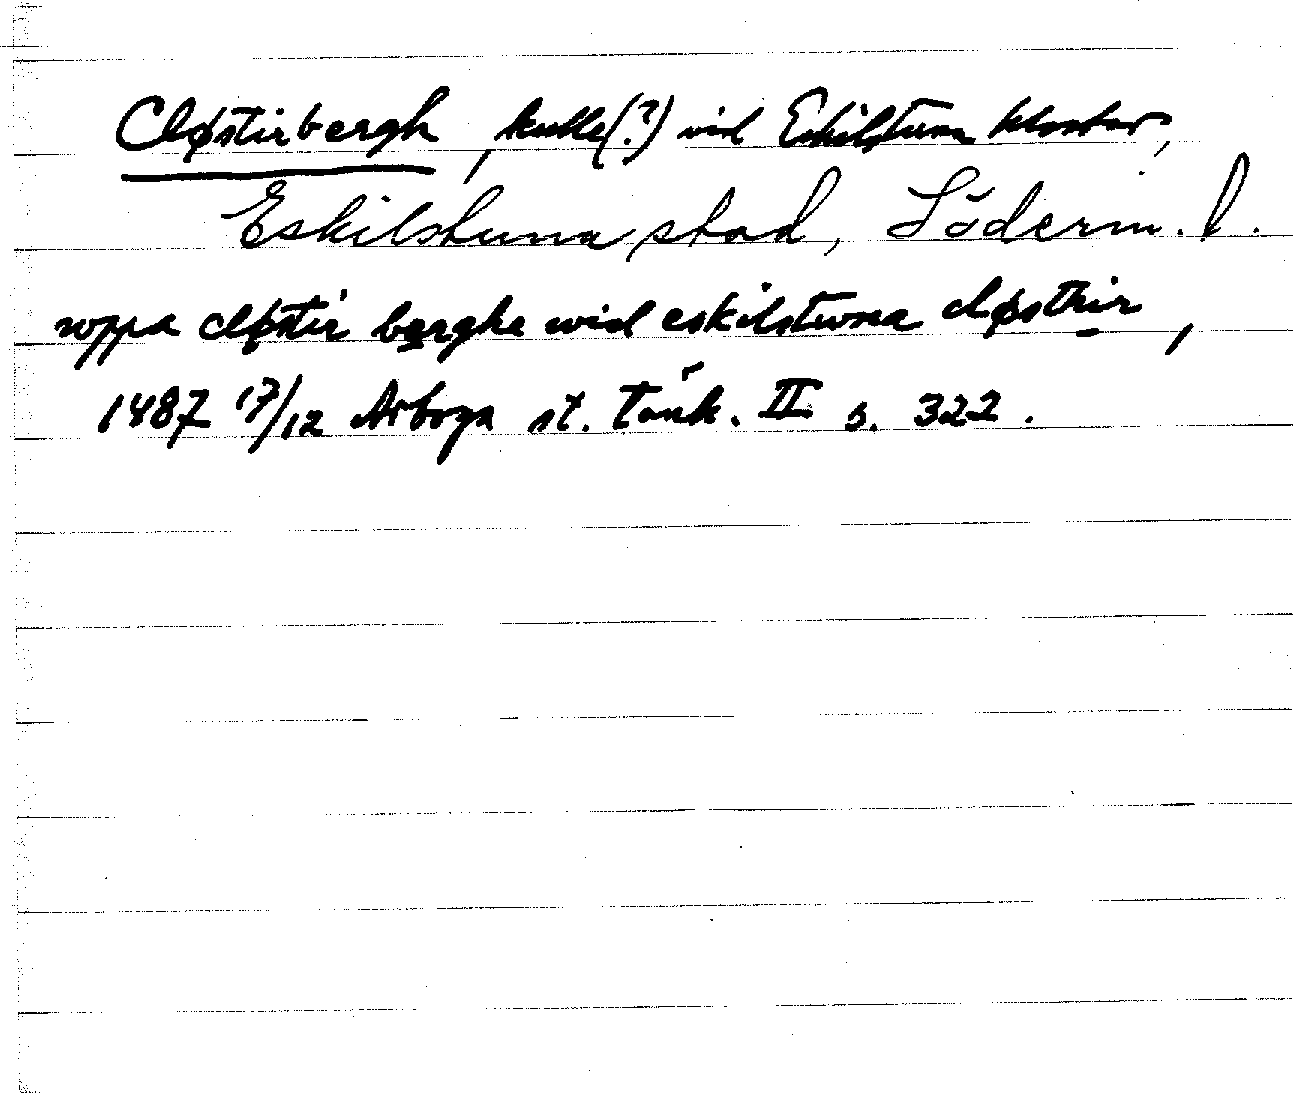 Cløstirbergh, kulle(?) vid Eskilstuna kloster,
Eskilstuna stad, Söderm. l.
wppa cløstir berghe wid eskilstwna cløsthir,
1487 17/12 Arboga st. Tänk. II s. 322.